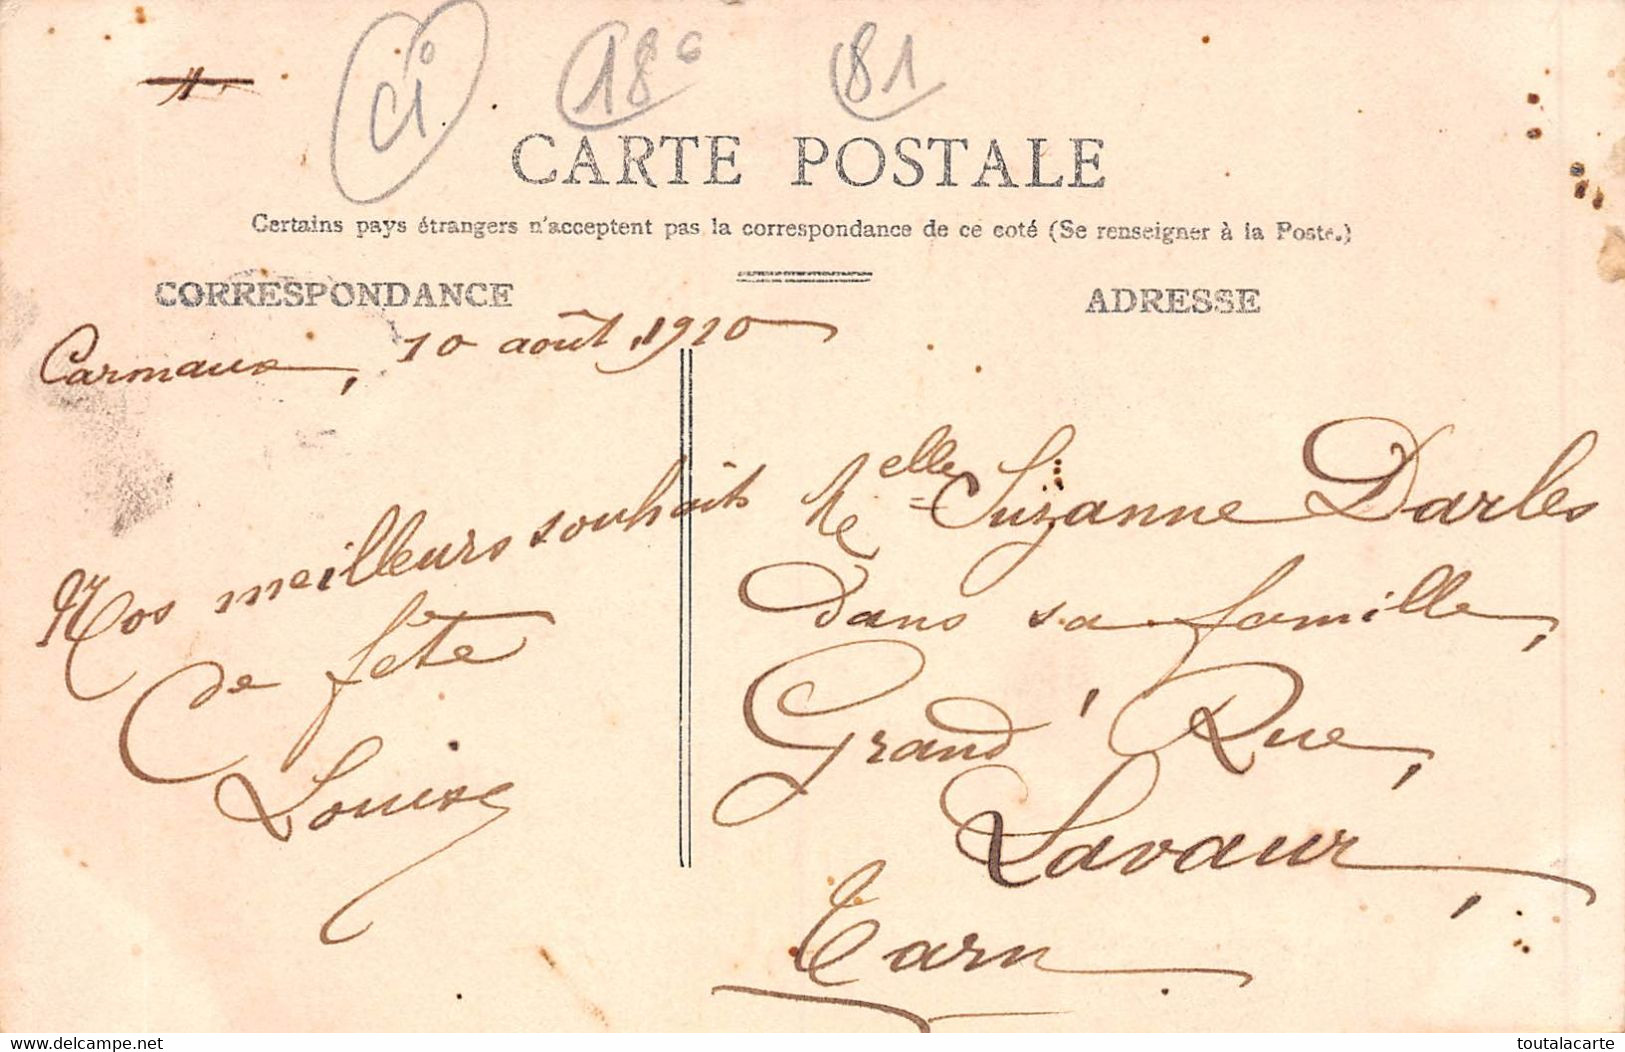 18€
81
CARTE POSTALE
Certains pays étrangers n'acceptent pas la correspondance de ce coté (Se renseigner à la Poste.)
CORRESPONDANCE
ADRESSE
Carmaux, 10 août 1910
Nos meilleurs souhaits
de fête
Louise
Melle Suzanne Darles
dans sa famille,
Grand' Rue,
Lavaur,
Tarn
www.delcampe.net
toutalacarte